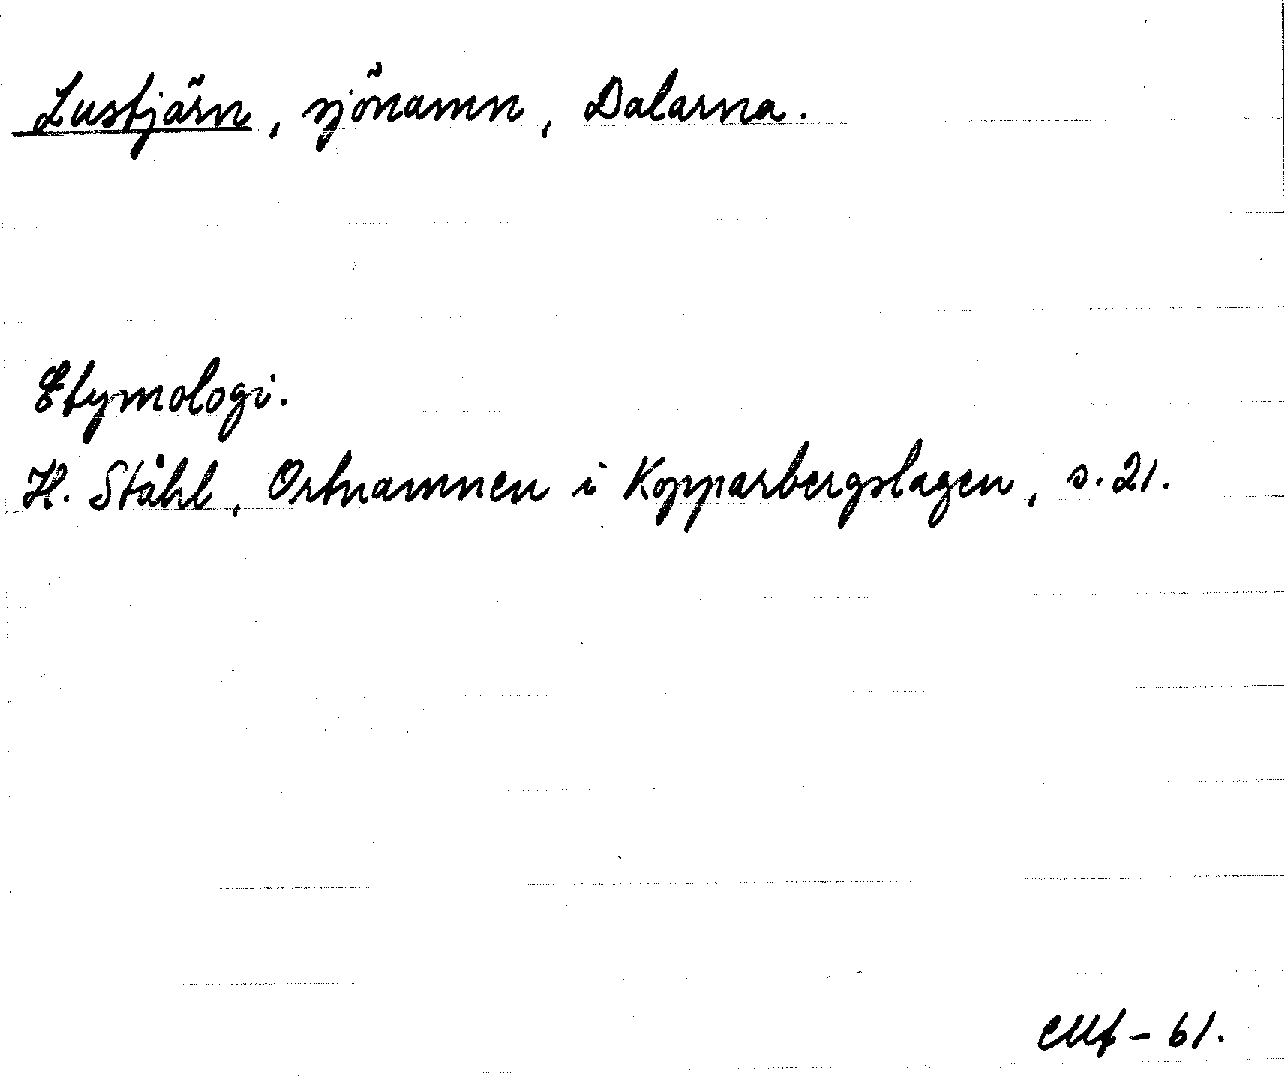 Lustjärn, sjönamn, Dalarna.
Etymologi.
H. Ståhl, Ortnamnen i Kopparbergslagen, s. 21.
- 61.